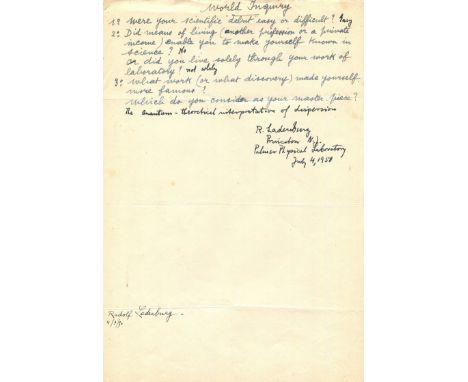 World Inquiry
1º Were your scientific debut easy or difficult? Easy
2º Did means of living (another profession or a private
income) enable you to make yourself known in
science? No
or did you live solely through your work of
laboratory? not solely
3º What work (or what discovery) made yourself
more famous?
Which do you consider as your master piece?
The quantum-theoretical interpretation of dispersion
R. Ladenburg
Princeton N.J.
Palmer Physical Laboratory
July 4, 1950
Rudolf Ladenburg -